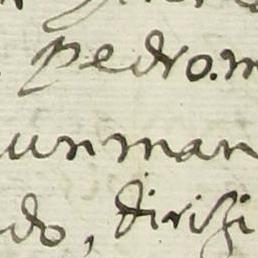 pedro. m
un man
do, dirisi